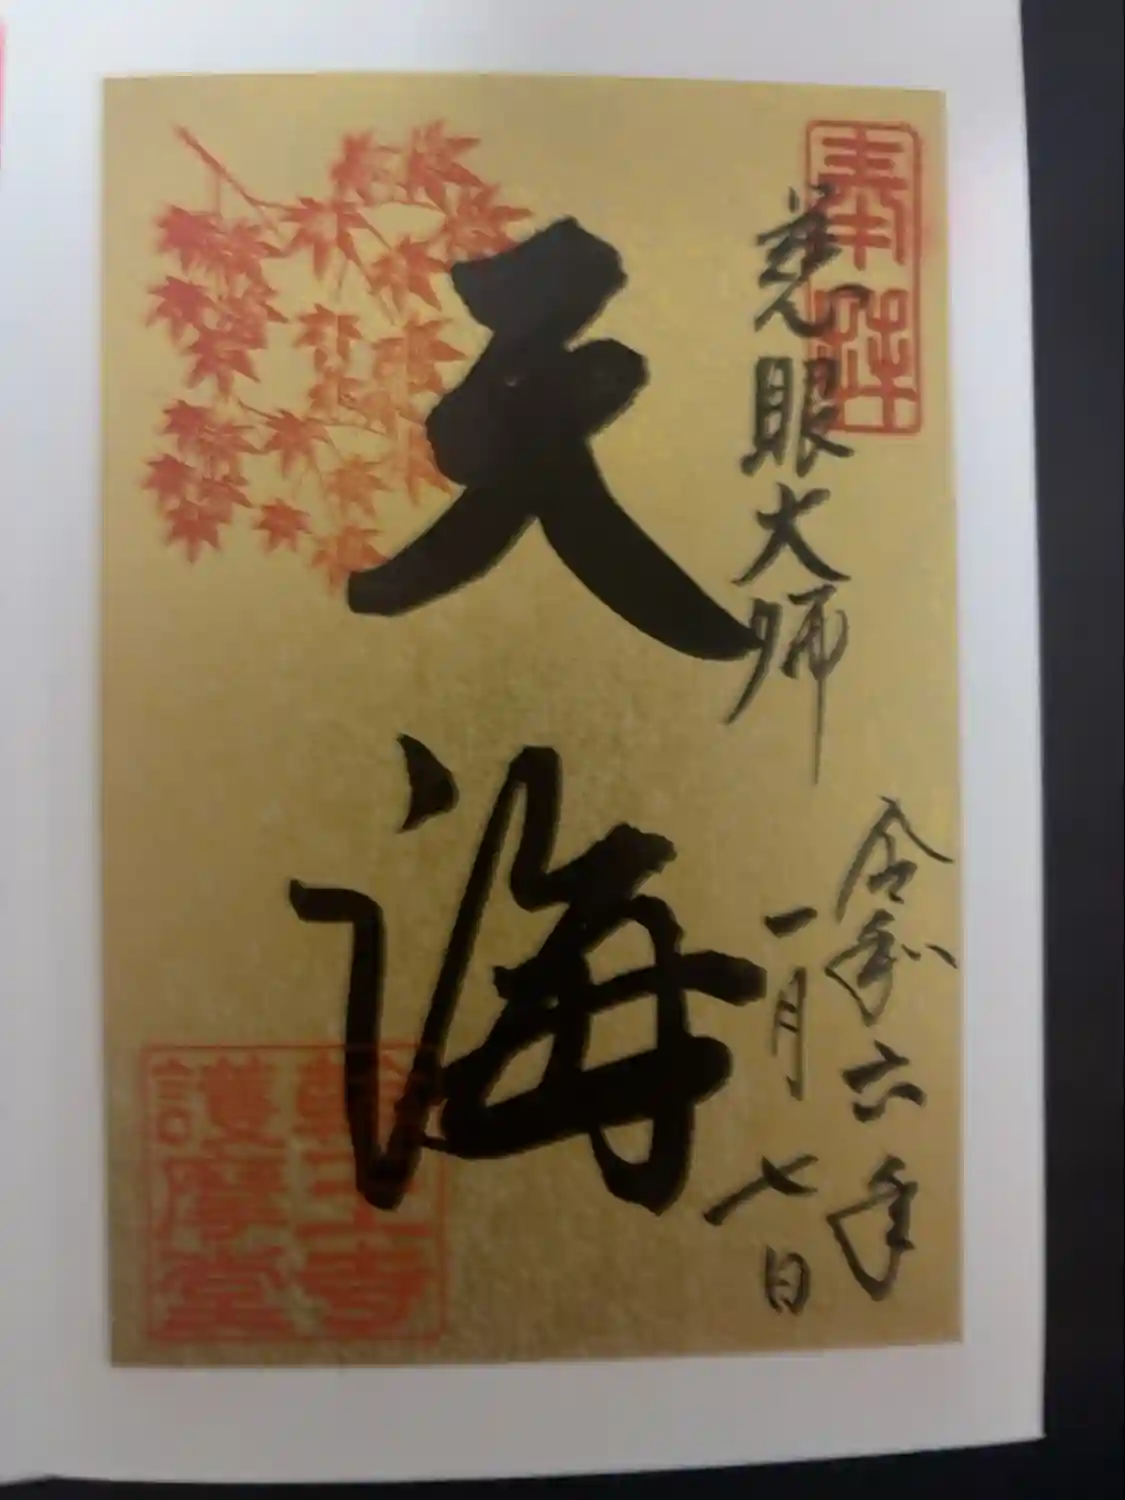 奉拝
慈眼大師
令和六年
一月七日
天海
輪王寺
護摩堂